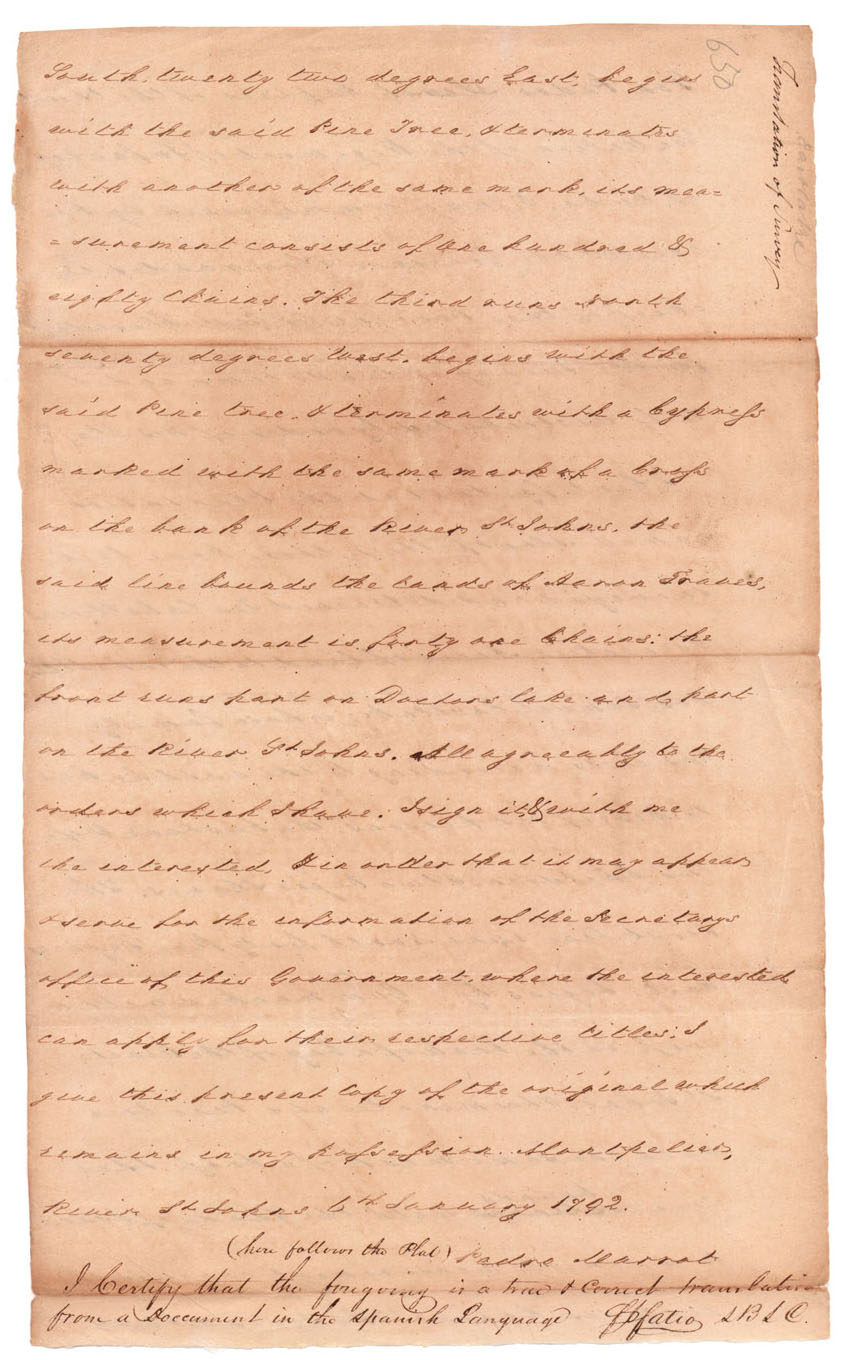 South twenty two degrees East, begins
with the said Pine Tree, & terminates
with another of the same mark, its mea=
=surement consists of One hundred &
eighty Chains. The third runs North
seventy degrees West, begins with the
said Pine tree, & terminates with a Cypress
marked with the same mark of a Cross
on the bank of the River St Johns, the
said line bounds the Lands of Aaron Traves,
its measurement is forty one Chains: the
front runs part on Doctors lake and part
on the River St Johns. All agreeably to the
orders which I have. I sign it, & with me
the interested, & in order that it may appear
& serve for the information of the Secretarys
office of this Government, where the interested
can apply for their respective titles; I
give this present Copy of the original which
remains in my possession. Montpelier,
River St Johns 6th January 1792.
(here follows the Plat) Pedro Marrot
I Certify that the foregoing is a true & Correct translation
from a Doccument in the Spanish Language FJFatio S B L C.
Translation of Survey
650